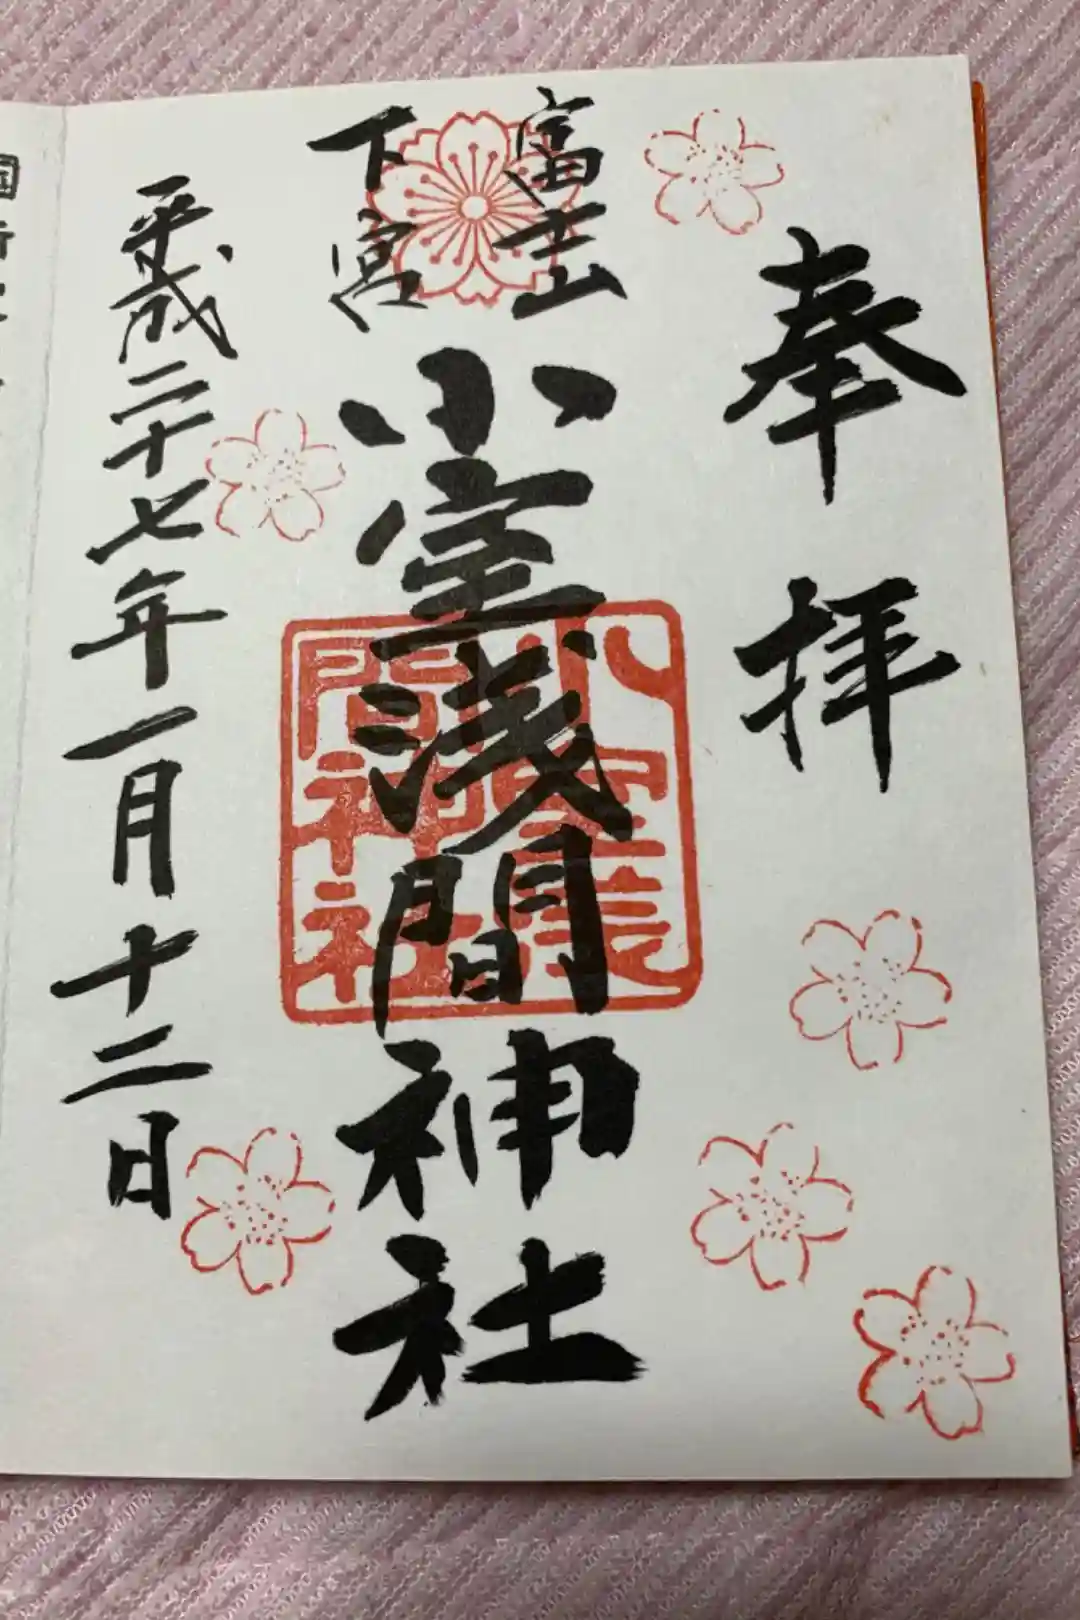 奉拝
富士山
下宮
小室浅間神社
小室浅間神社
平成二十七年一月十二日